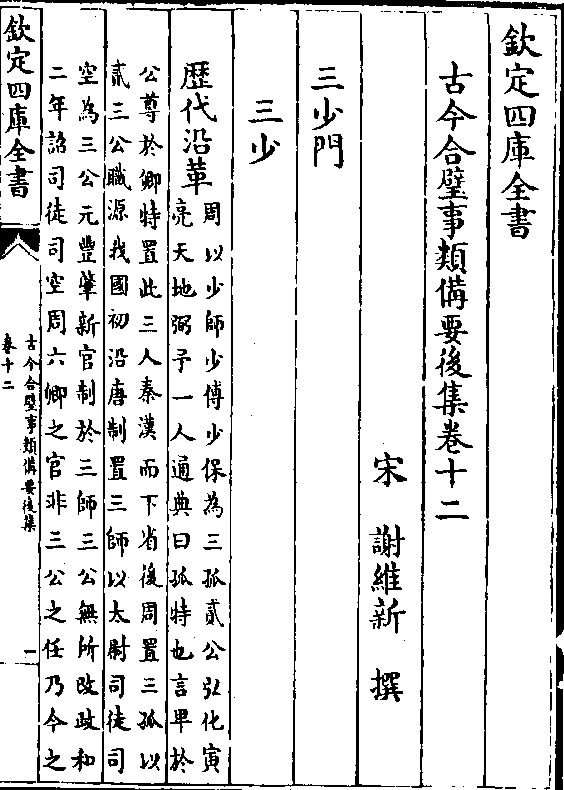 欽定四庫全書
古今合璧事類備要後集卷十二
宋 謝維新 撰
三少門
三少
歷代沿革
周以少師少傅少保為三孤貳公弘化寅
亮天地弼予一人通典曰孤特也言卑於
公尊於卿特置此三人秦漢而下省後周置三孤以
貳三公職源我國初沿唐制置三師以太尉司徒司
空為三公元豐肇新官制於三師三公無所改政和
二年詔司徒司空周六卿之官非三公之任乃今之
欽定四庫全書
古今合璧事類備要後集
卷十二
一